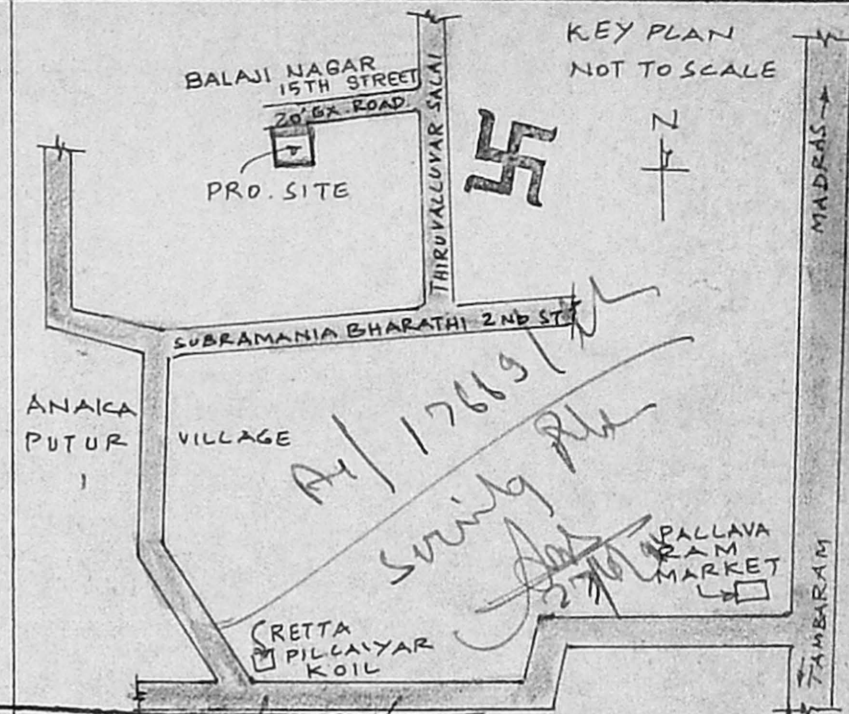 KEY PLAN
NOT TO SCALE
BALAJI NAGAR
15TH STREET
20' GX. ROAD
PRO. SITE
THIRUVALLUVAR SALAI
N
MADRAS
SUBRAMANIA BHARATHI 2Nd ST
ANAKA
PUTUR
VILLAGE
PALLAVA
RAM
MARKET
TAMBARAM
RETTA
PILLAIYAR
KOIL